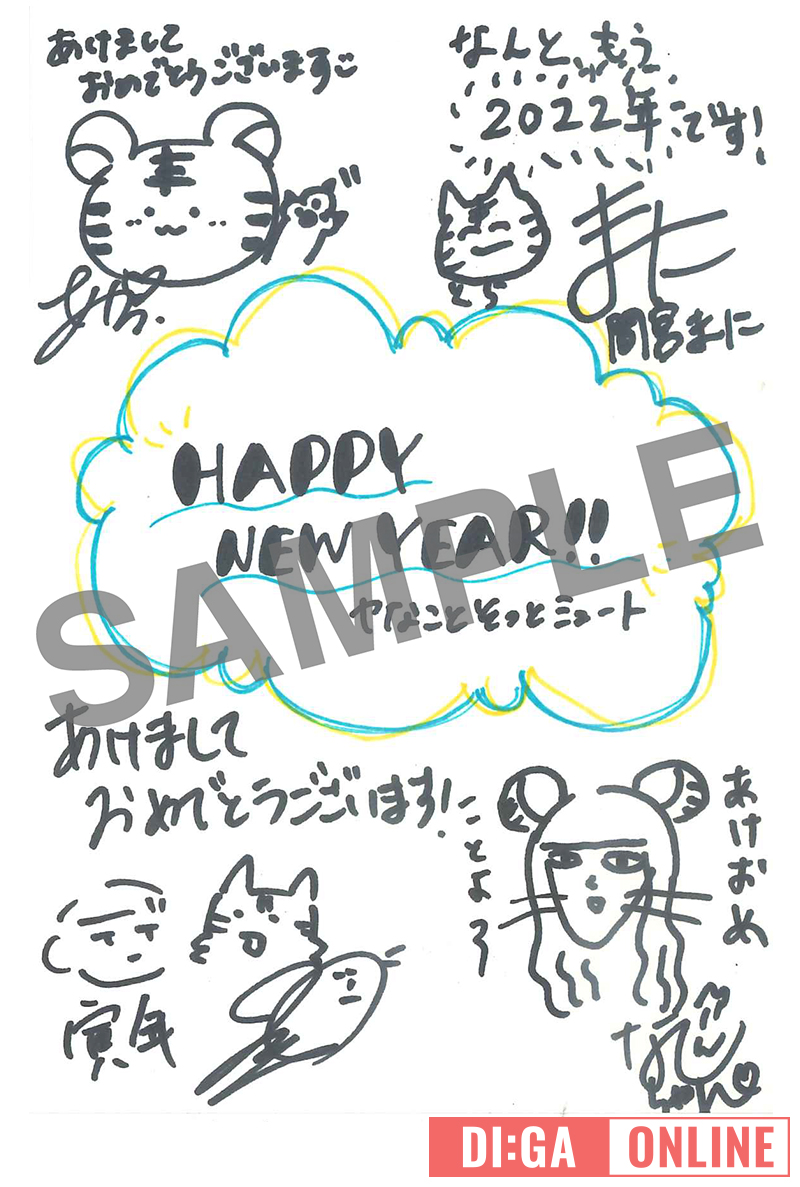 あけまして
おめでとうございます
なんと、もう
2022年です!
とら
まに
間宮まに
なかっ.
HAPPY
NEW YEAR!!
ヤなことそっとミュート
SAMPLE
あけまして
おめでとうございます!
寅年
あけおめ
ことよろ
なでしこ
ちゃん
DI:GA ONLINE